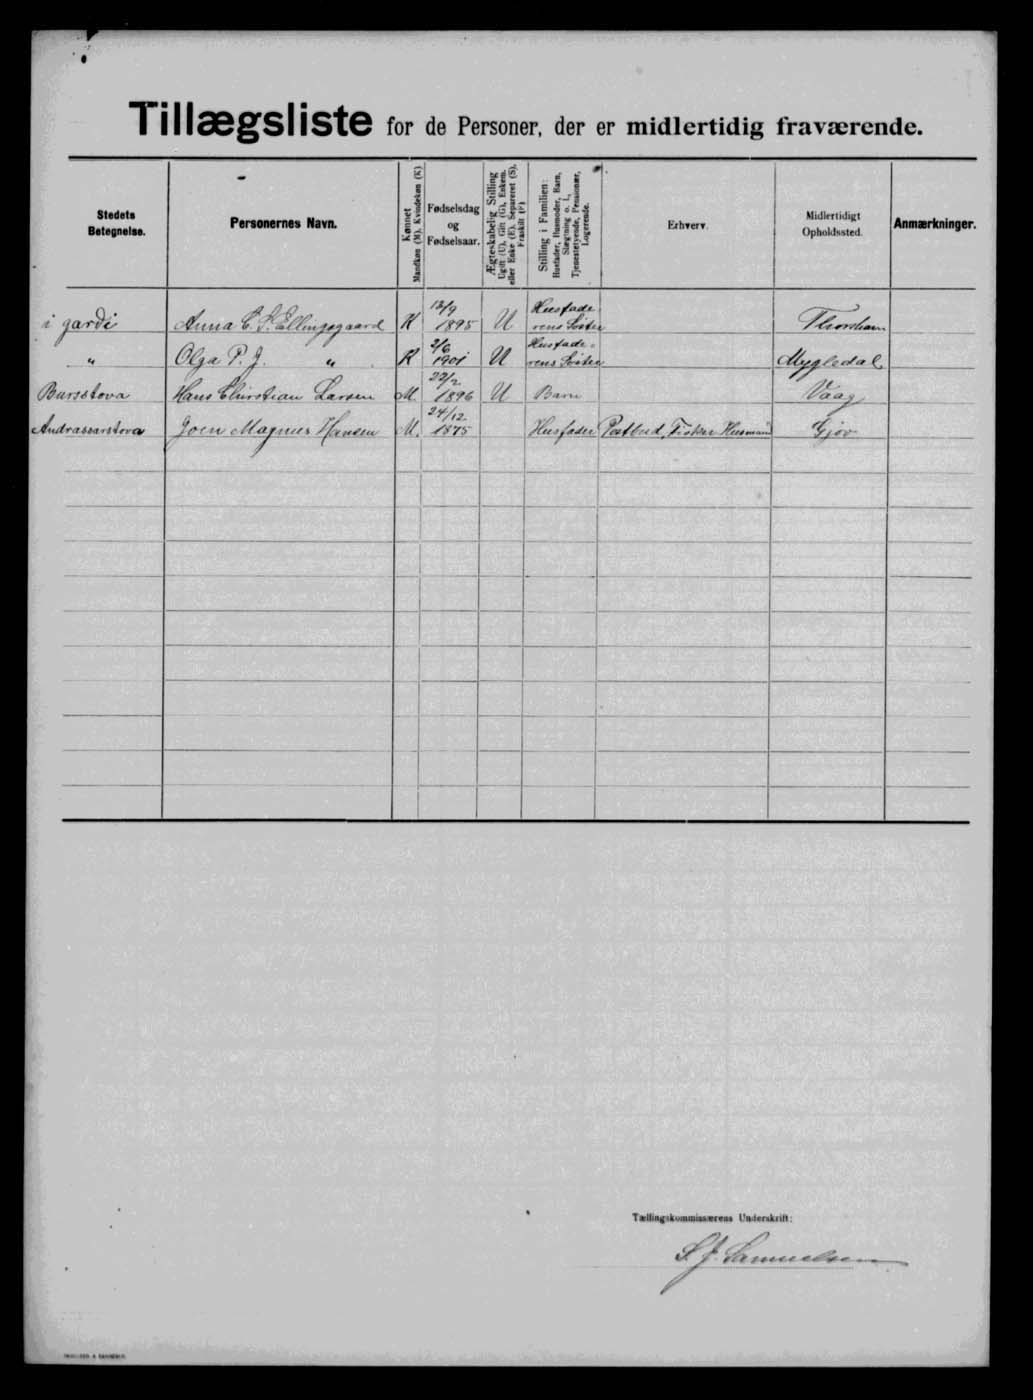 Tillægsliste for de Personer, der er midlertidig fraværende.
Stedets Betegnelse.
Personernes Navn.
Kønnet
Mandkøn (M), Kvindekøn (K)
Fødselsdag
og
Fødselsaar.
Ægteskabelig Stilling
Ugift (U), Gift (G), Enkem.
eller Enke (E), Separeret (S),
Fraskilt (F)
Stilling i Familien:
Husfader, Husmoder, Barn,
Slægtning o. l.,
Tjenestetyende, Pensionær,
Logerende.
Erhverv.
Midlertidigt
Opholdssted.
Anmærkninger.
i gardi Anna C. S. Ellingsgaard K 13/9 1895 U Husfaderens Søster Thorshavn
" Olga P. J. " K 2/6 1901 U Husfaderens Søster Mygledal
Barsstova Hans Christian Larsen M 22/2 1896 U Barn Vaag
Andrassarstova Joen Magnus Hansen M. 24/12 1875 Husfader Postbud, Fisker Husmand Gjov
Tællingskommissærens Underskrift:
S. J. Samuelsen